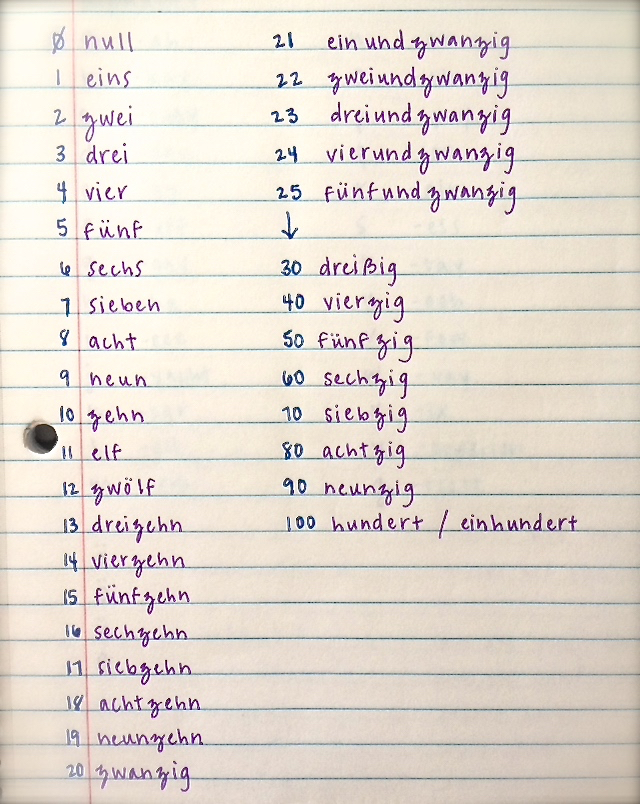 0 null
1 eins
2 zwei
3 drei
4 vier
5 fünf
6 sechs
7 sieben
8 acht
9 neun
10 zehn
11 elf
12 zwölf
13 dreizehn
14 vierzehn
15 fünfzehn
16 sechzehn
17 siebzehn
18 achtzehn
19 neunzehn
20 zwanzig
21 ein und zwanzig
22 zweiundzwanzig
23 dreiundzwanzig
24 vierundzwanzig
25 fünfundzwanzig
↓
30 dreißig
40 vierzig
50 fünfzig
60 sechzig
70 siebzig
80 achtzig
90 neunzig
100 hundert / einhundert